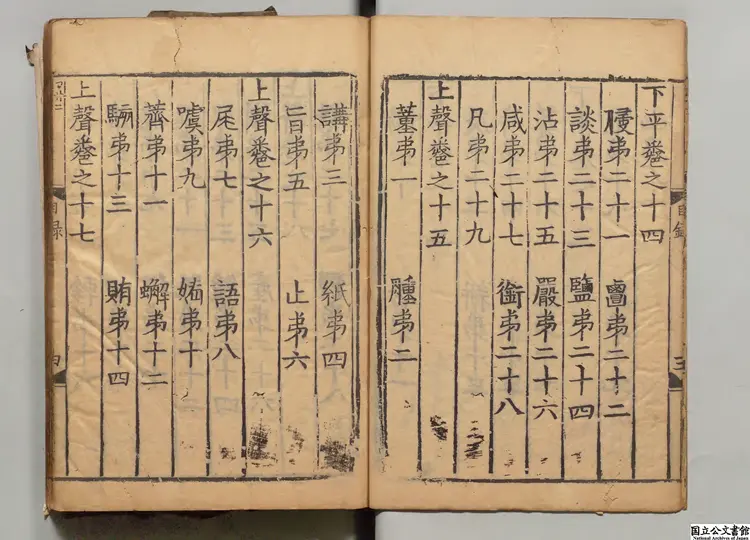 下平卷之十四
侵弟二十一 覃弟二十二
談弟二十三 鹽弟二十四
沾弟二十五 嚴弟二十六
咸弟二十七 銜弟二十八
凡弟二十九
上聲卷之十五
董弟一 腫弟二
講弟三 紙弟四
旨弟五 止弟六
上聲卷之十六
尾弟七 語弟八
噳弟九 姥弟十
薺弟十一 蟹弟十二
駭弟十三 賄弟十四
上聲卷之十七
目録
目録
国立公文書館
National Archives of Japan